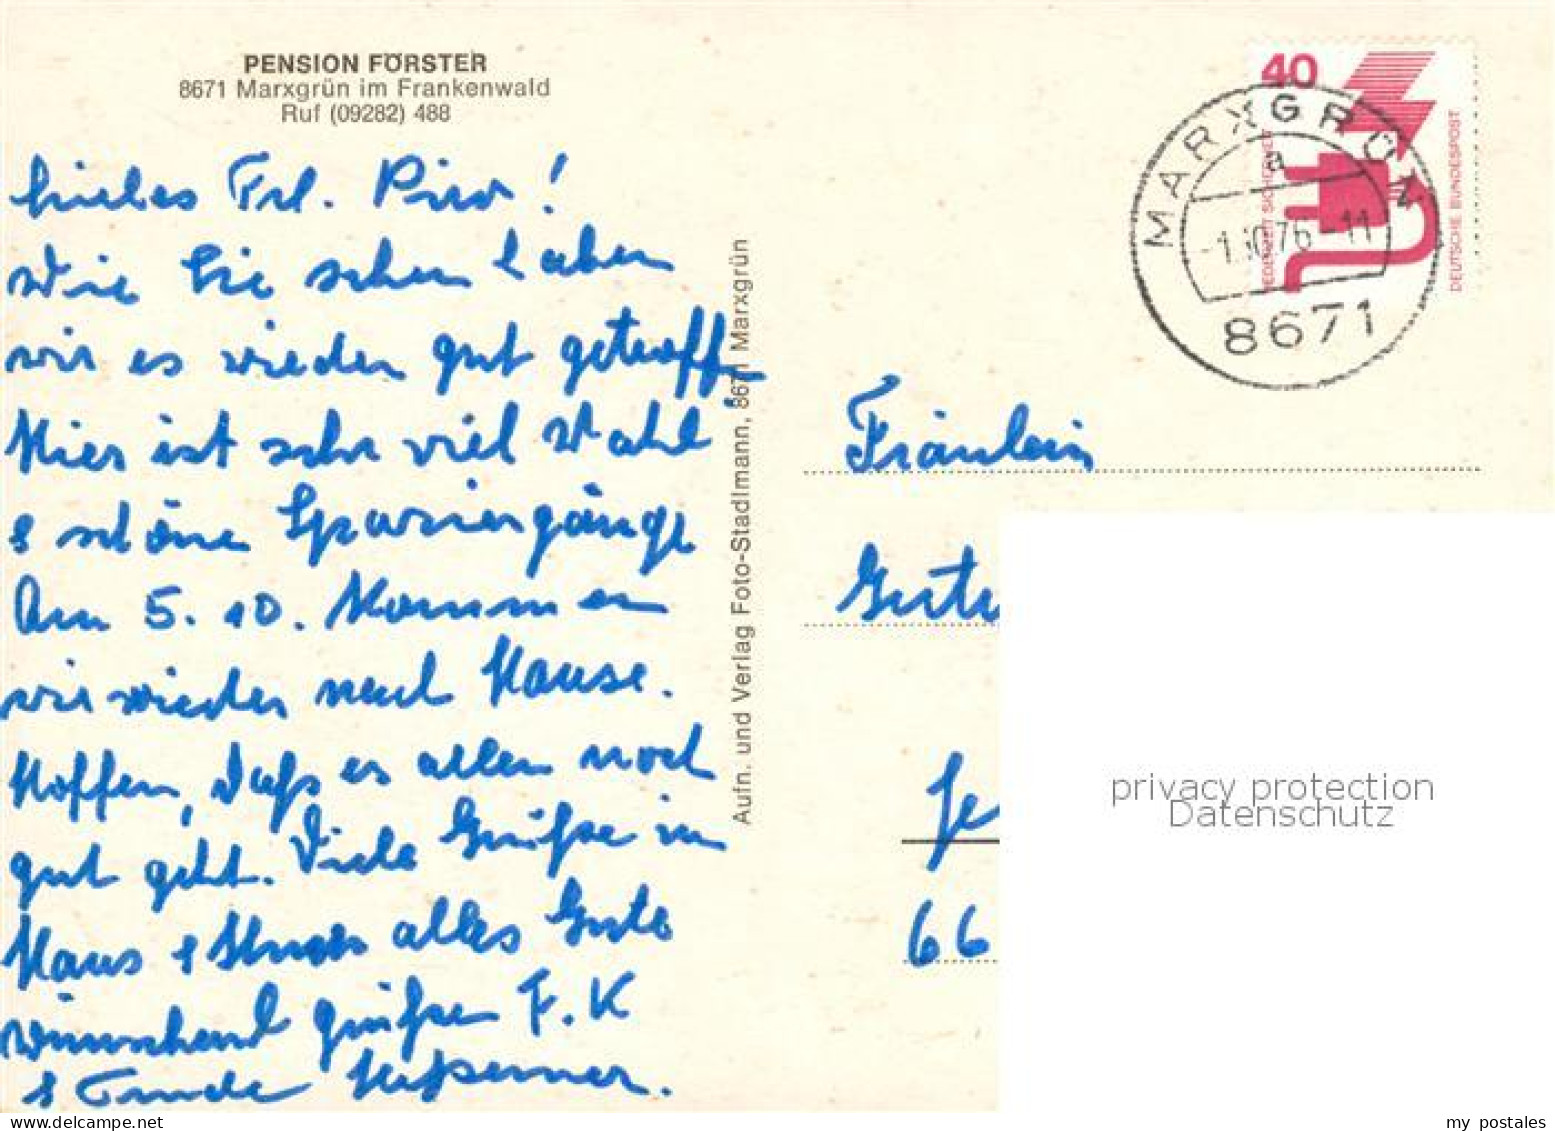 PENSION FÖRSTER
8671 Marxgrün im Frankenwald
Ruf (09282) 488
Liebes Frl. Piro!
Wie Sie sehen haben
wir es wieder gut getroff.
Hier ist sehr viel Wald
& schöne Spaziergänge
Am 5. 10. Kommen
wir wieder nach Hause.
Hoffen, daß es allen noch
gut geht. Viele Grüße im
Haus & Ihnen alles Gute
wünschend grüßen F. K
&
Aufn. und Verlag Foto-Stadlmann, 8671 Marxgrün
40
JEDERZEIT SICHERHEIT
DEUTSCHE BUNDESPOST
MARXGRÜN
a
-1.10.76-11
8671
Fräulein
66
privacy protection
Datenschutz
my postales